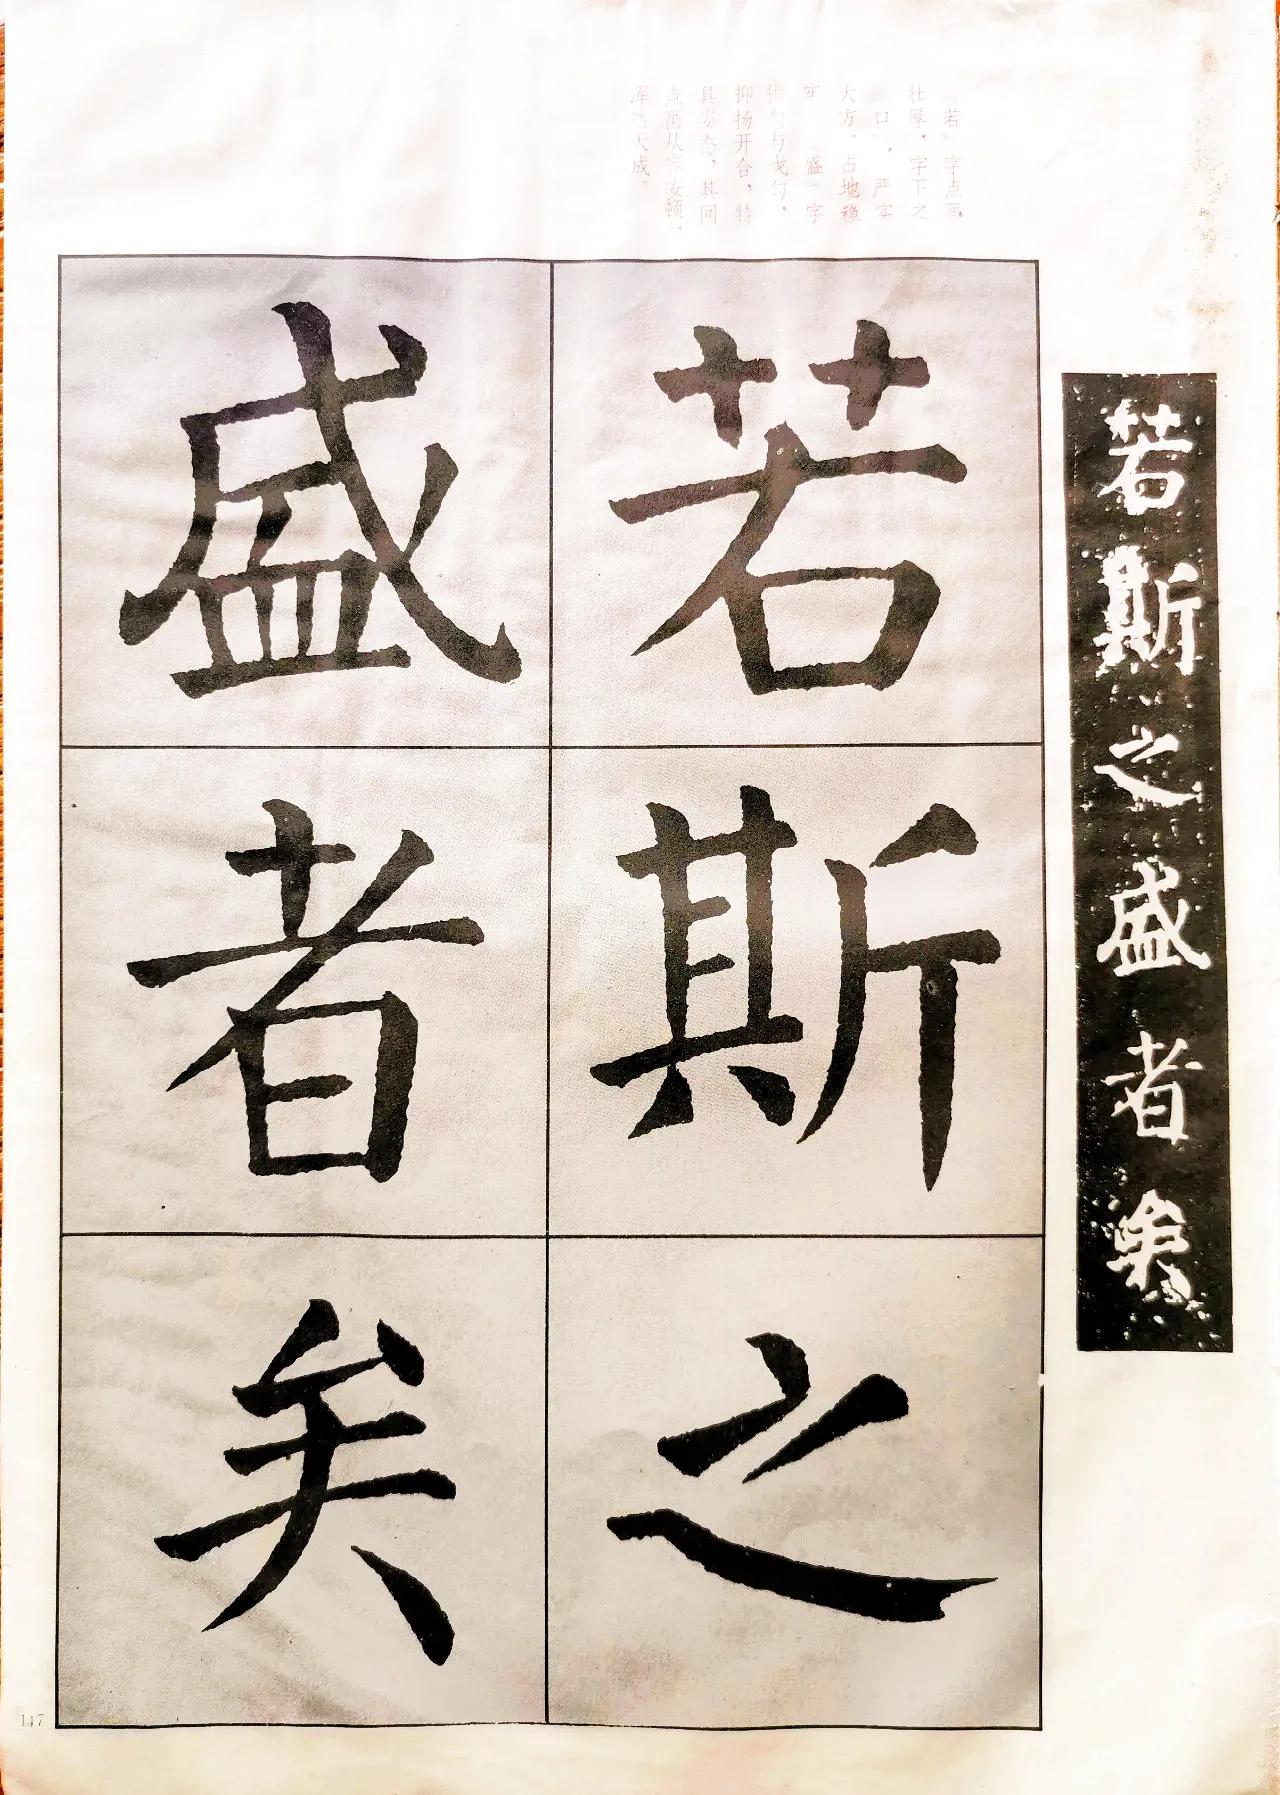 “若”字点画
壮厚，字下之
“口”，严实
大方，占地稳
牢。“盛”字
抑扬开合，特
具姿态，其间
点画从容安顿，
浑然天成。
若斯之
盛者矣
若斯之盛者矣
147